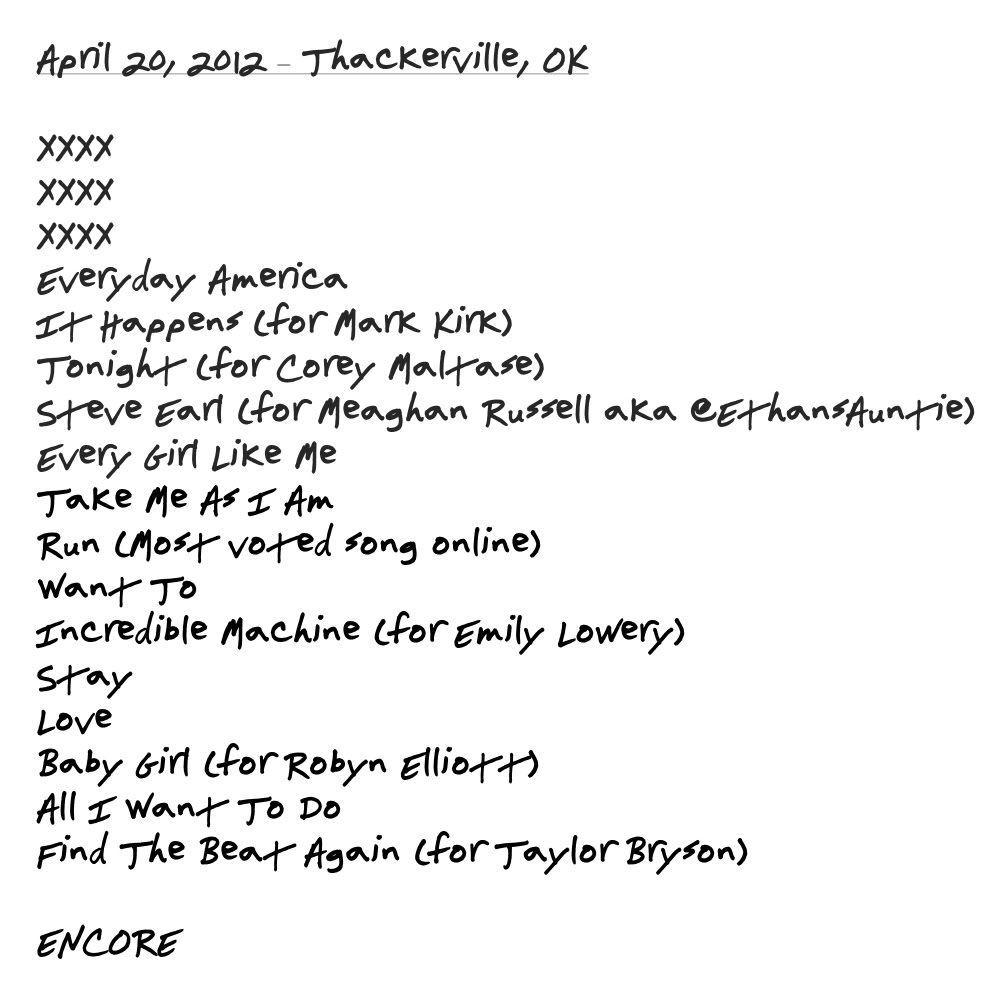 April 20, 2012 – Thackerville, OK
XXXX
XXXX
XXXX
Everyday America
It Happens (for Mark Kirk)
Tonight (for Corey Maltase)
Steve Earl (for Meaghan Russell aka @EthansAuntie)
Every Girl Like Me
Take Me As I Am
Run (Most voted song online)
Want To
Incredible Machine (for Emily Lowery)
Stay
Love
Baby Girl (for Robyn Elliott)
All I Want To Do
Find The Beat Again (for Taylor Bryson)
ENCORE